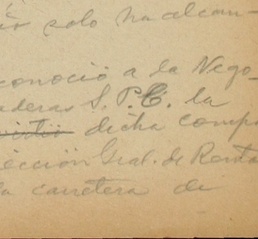 solo no alcan-
conoció a la Nego-
aderas S. P. C. la
dicha compa
ección Gral. de Renta
la carretera de